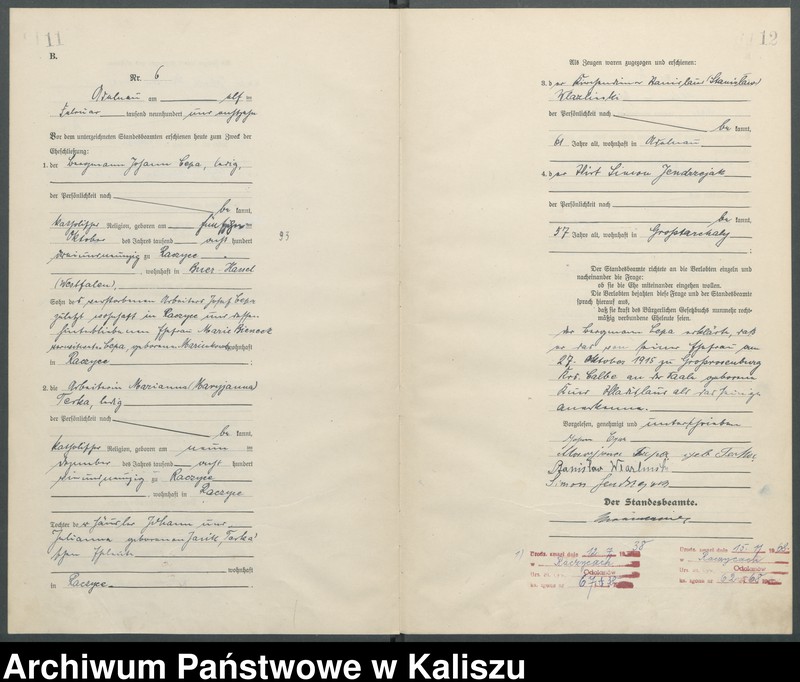 11
B.
Nr. 6
Adelnau am elf ten
Februar tausend neunhundert und achtzehn
Vor dem unterzeichneten Standesbeamten erschienen heute zum Zweck der
Eheschließung:
1. der Bergmann Johann Cepa, ledig,
der Persönlichkeit nach
be kannt,
katholischer Religion, geboren am
Oktober des Jahres tausend acht hundert
dreiundneunzig zu Raczyce
93
, wohnhaft in Buer-Hassel
(Westfalen),
Sohn des verstorbenen Arbeiters Josef Cepa
zuletzt wohnhaft in Raczyce und dessen
hinterbliebenen Ehefrau Marie
verwitweten Cepa, geborene wohnhaft
in Raczyce ;
2. die Arbeiterin Marianna (Maryjanna)
Teska, ledig
der Persönlichkeit nach
be kannt,
katholischer Religion, geboren am neun ten
Dezember des Jahres tausend acht hundert
zu Raczyce
, wohnhaft in Raczyce
Tochter der Häusler Johann und
Julianna geborenen Janik, Teska'
schen Eheleute
wohnhaft
in Raczyce
12
Als Zeugen waren zugezogen und erschienen:
3. der Kirchendiener Stanislaus (Stanisław)
der Persönlichkeit nach
be kannt,
61 Jahre alt, wohnhaft in Adelnau
4. der Wirt Simon Jendrzejak
der Persönlichkeit nach
be kannt,
57 Jahre alt, wohnhaft in Großtarchaly
;
Der Standesbeamte richtete an die Verlobten einzeln und
nacheinander die Frage:
ob sie die Ehe miteinander eingehen wollen.
Die Verlobten bejahten diese Frage und der Standesbeamte
sprach hierauf aus,
daß sie kraft des Bürgerlichen Gesetzbuchs nunmehr recht-
mäßig verbundene Eheleute seien.
Der Bergmann Cepa erklärte, daß
er das von seiner Ehefrau am
27. Oktober 1915 zu Großrosenburg
Krs. Calbe an der Saale geborene
Kind Stanislaus als das seinige
anerkenne.
Vorgelesen, genehmigt und unterschrieben
Cepa
geb. Teska
Stanisław
Simon Jendrzejak
Der Standesbeamte.
1)
w Raczycach
Odolanów
w Raczycach
Odolanów
Archiwum Państwowe w Kaliszu